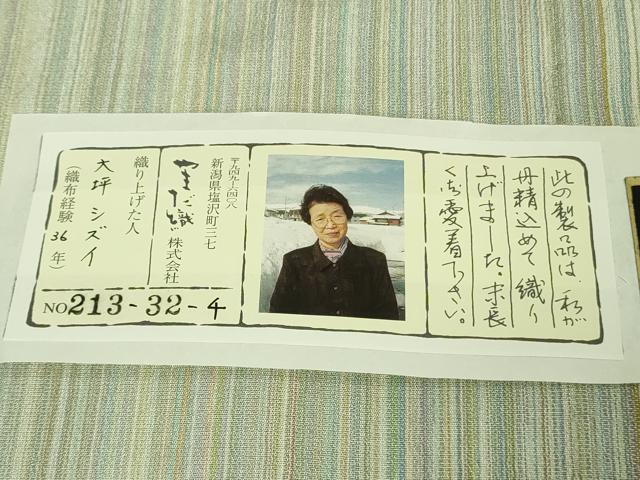 此の製品は、私が
丹精込めて織り
上げました。末長
くご愛着下さい。
〒九四九-六四〇八
新潟県塩沢町三七
やまだ織株式会社
織り上げた人
大坪シズイ
(織布経験36年)
NO213-32-4